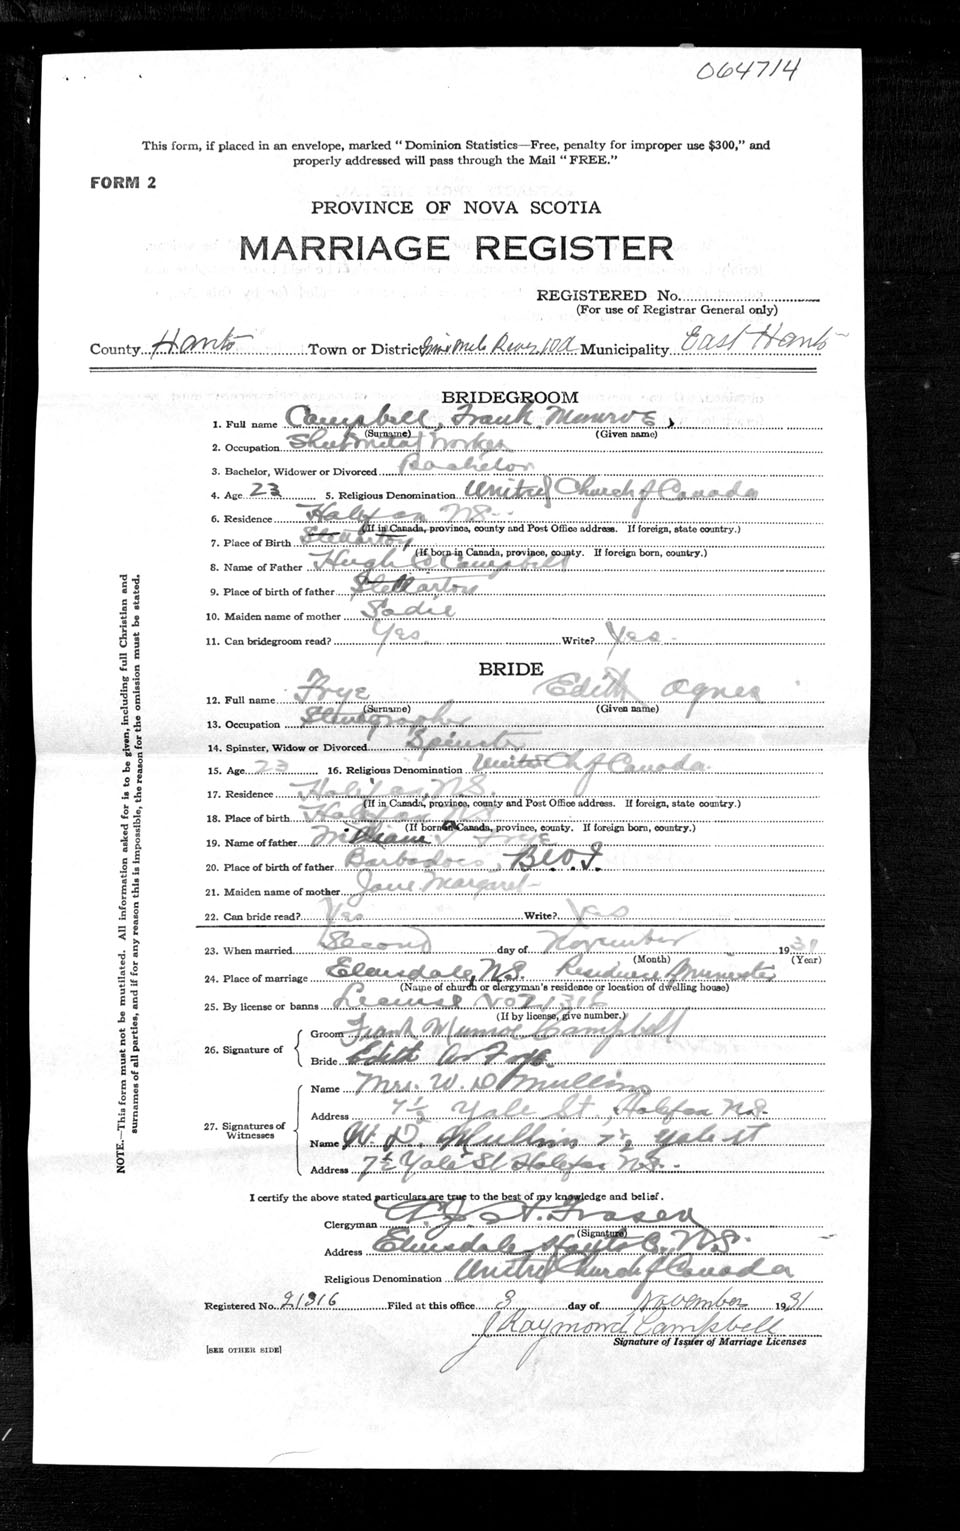 064714
This form, if placed in an envelope, marked "Dominion Statistics—Free, penalty for improper use $300," and
properly addressed will pass through the Mail "FREE."
FORM 2
PROVINCE OF NOVA SCOTIA
MARRIAGE REGISTER
REGISTERED No.
(For use of Registrar General only)
County Hants Town or District Nine Mile River Municipality East Hants
BRIDEGROOM
1. Full name Campbell, Frank Munroe
(Surname) (Given name)
2. Occupation Sheet Metal Worker
3. Bachelor, Widower or Divorced Bachelor
4. Age 23 5. Religious Denomination United Church of Canada
6. Residence Halifax N.S.
(If in Canada, province, county and Post Office address. If foreign, state country.)
7. Place of Birth Stellarton
(If born in Canada, province, county. If foreign born, country.)
8. Name of Father Hugh C Campbell
9. Place of birth of father Stellarton
10. Maiden name of mother Sadie
11. Can bridegroom read? Yes Write? Yes
BRIDE
12. Full name Frye Edith Agnes
(Surname) (Given name)
13. Occupation Stenographer
14. Spinster, Widow or Divorced Spinster
15. Age 23 16. Religious Denomination United Ch of Canada
17. Residence Halifax, N.S.
(If in Canada, province, county and Post Office address. If foreign, state country.)
18. Place of birth Halifax N.S.
(If born in Canada, province, county. If foreign born, country.)
19. Name of father William Frye
20. Place of birth of father Barbadoes, B.W.I.
21. Maiden name of mother Jane Margaret
22. Can bride read? Yes Write? Yes
23. When married Second day of November 1931
(Month) (Year)
24. Place of marriage Elmsdale, N.S. Residence Minister
(Name of church or clergyman's residence or location of dwelling house)
25. By license or banns License No 21316
(If by license, give number.)
26. Signature of
Groom Frank Munroe Campbell
Bride Edith A. Frye
27. Signatures of Witnesses
Name Mrs. W. D Mullins
Address 7½ Yale St, Halifax N.S.
Name W. D. Mullins 7½ Yale St
Address 7½ Yale St Halifax N.S.
I certify the above stated particulars are true to the best of my knowledge and belief.
Clergyman H. Fraser
(Signature)
Address Elmsdale Hants Co. N.S.
Religious Denomination United Church of Canada
Registered No. 21316 Filed at this office 3 day of November 1931
J Raymond Campbell
Signature of Issuer of Marriage Licenses
[SEE OTHER SIDE]
NOTE.—This form must not be mutilated. All information asked for is to be given, including full Christian and
surnames of all parties, and if for any reason this is impossible, the reason for the omission must be stated.